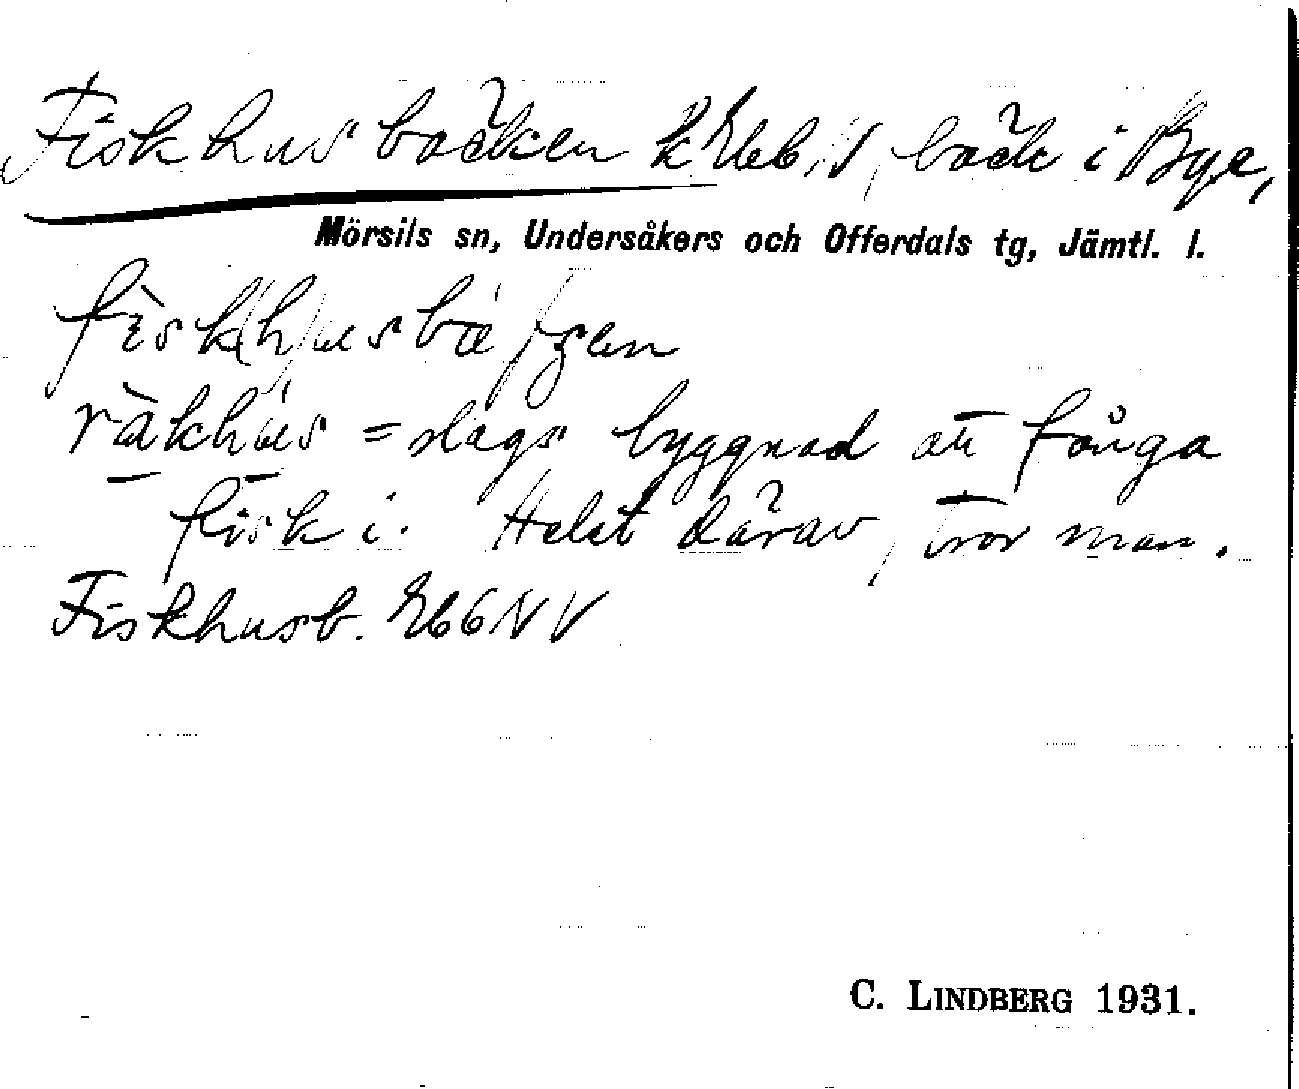 Fiskhusbäcken k Ekb. S, bäck i Bye,
Mörsils sn, Undersåkers och Offerdals tg, Jämtl. l.
räkhus = slags byggnad att fånga
fisk i. Helst därav, tror man.
Fiskhusb. Eb 6 NV
C. LINDBERG 1931.